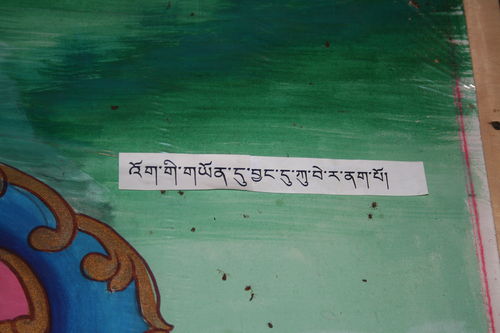 འོག་གི་གཡོན་དུ་བྱང་དུ་ཀུ་བེ་ར་ནག་པོ།